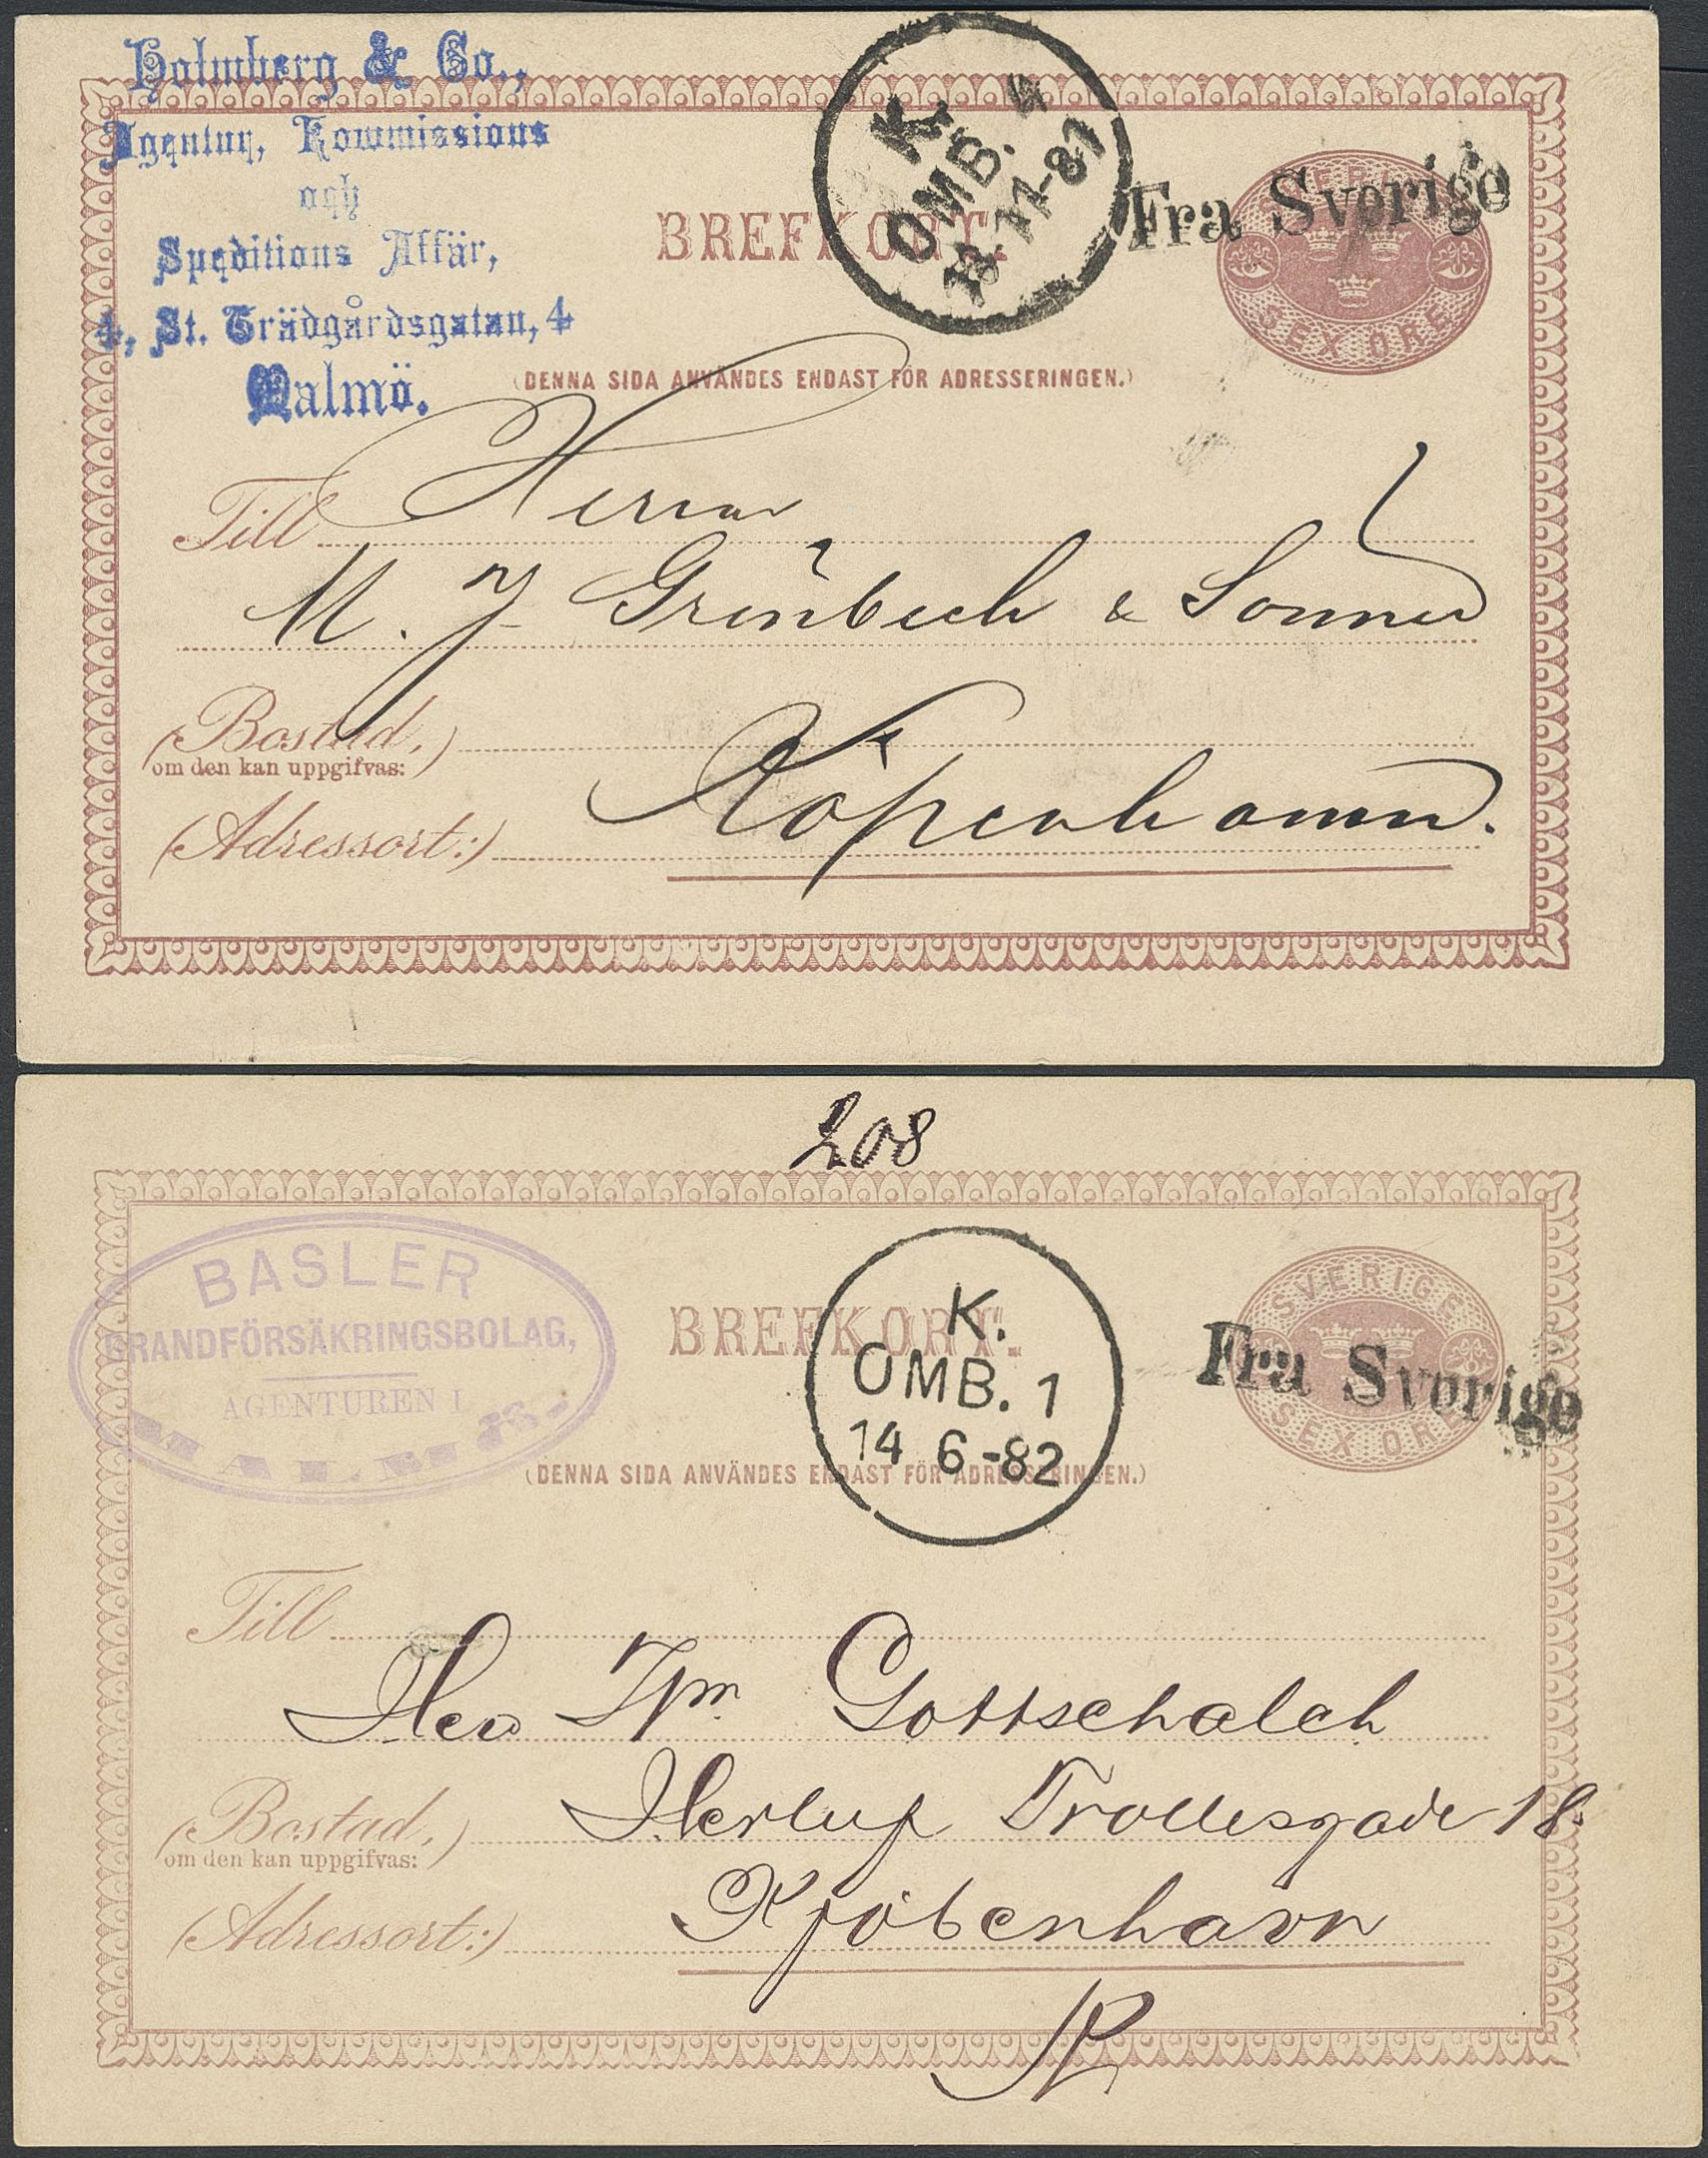 Holmberg & Co.,
Agentur, Kommissions
och
Speditions Affär,
4, St. Trädgårdsgatan, 4
Malmö.
BREFKORT.
K.
OMB. 4
-81
Fra Sverige
SVERIGE
SEX ÖRE
(DENNA SIDA ANVÄNDES ENDAST FÖR ADRESSERINGEN.)
Till Herrar
M. J. Grönbech & Sønner
(Bostad,)
om den kan uppgifvas:
Köpenhamn.
(Adressort:)
208
BASLER
BRANDFÖRSÄKRINGSBOLAG,
AGENTUREN I
MALMÖ
BREFKORT.
K.
OMB. 1
14 6-82
SVERIGE
Fra Sverige
SEX ÖRE
(DENNA SIDA ANVÄNDES ENDAST FÖR ADRESSERINGEN.)
Till
Herr Wm. Gottschalch
(Bostad,) Herluf Trollesgade 18.
om den kan uppgifvas:
(Adressort:) Kjöbenhavn